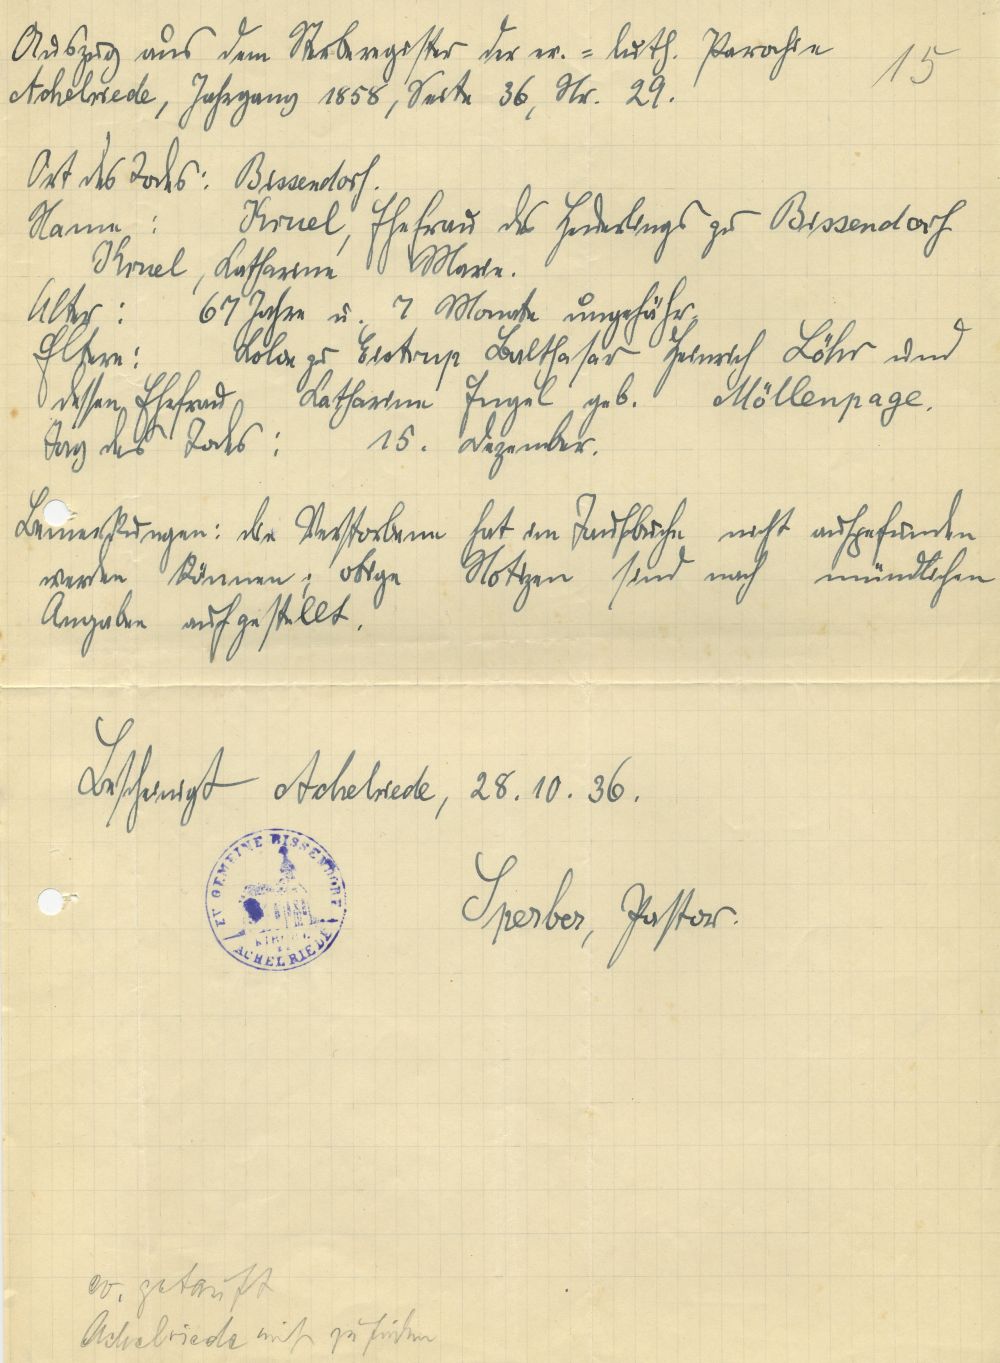 Auszug aus dem Sterberegister der ev.=luth. Parochie
15
Achelriede, Jahrgang 1858, Seite 36, Nr. 29.
Ort des Todes: Bissendorf.
Name : Kruel, Ehefrau des Heuerlings zu Bissendorf
Kruel, Catharine Marie.
Alter : 67 Jahre u. 7 Monate ungefähr.
Eltern: Colon zu Eistrup Balthasar Heinrich Löhr und
dessen Ehefrau Catharine Engel geb. Möllenpage.
Tag des Todes : 15. Dezember.
Bemerkungen: die Verstorbene hat im Taufbuche nicht aufgefunden
werden können; obige Notizen sind nach mündlichen
Angaben aufgestellt.
Bescheinigt Achelriede, 28.10.36.
EV GEMEINE BISSENDORF
KIRCHE
ACHELRIEDE
Sperber, Pastor.
ev. getauft
Achelriede nicht zu finden